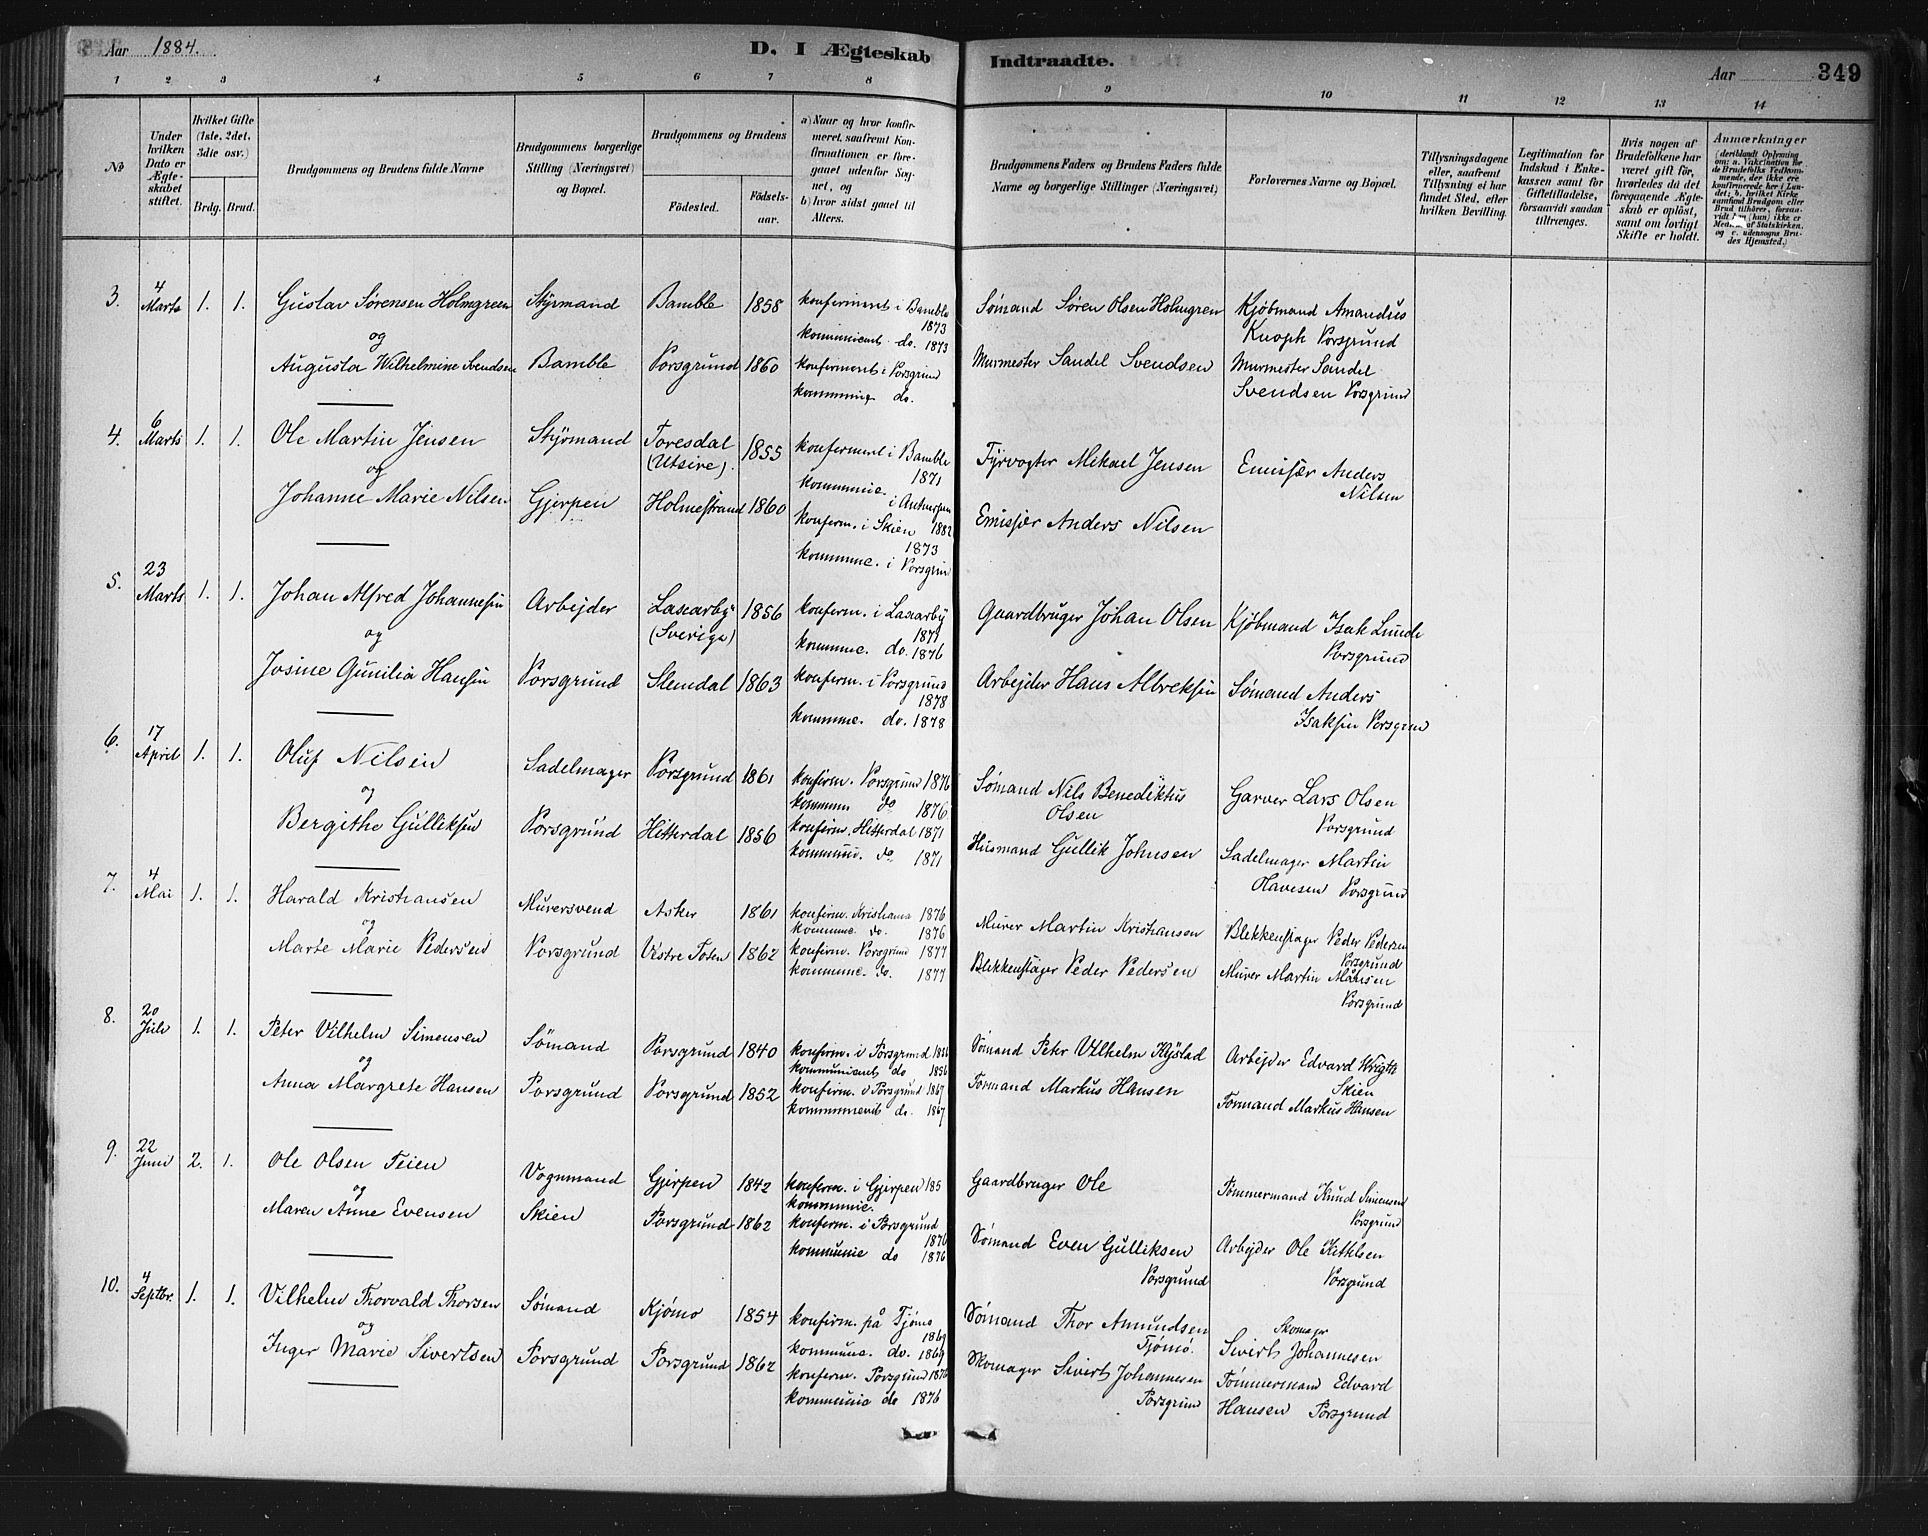 Aar 1884.
D. I Ægteskab Indtraadte.
Aar 349
1 2 3 4 5 6 7 8 9 10 11 12 13 14
No
Under hvilken Dato er Ægteskabet stiftet.
Hvilket Gifte (1ste, 2det, 3die osv.)
Brdg. Brud.
Brudgommens og Brudens fulde Navne
Brudgommens borgerlige Stilling (Næringsvei) og Bopæl.
Brudgommens og Brudens
Födested. Födsels-aar.
a) Naar og hvor konfirmeret, saafremt Konfirmationen er foregaaet udenfor Sognet, og
b) hvor sidst gaaet til Alters.
Brudgommens Faders og Brudens Faders fulde Navne og borgerlige Stillinger (Næringsvei)
Forlovernes Navne og Bopæl.
Tillysningsdagene eller, saafremt Tillysning ei har fundet Sted, efter hvilken Bevilling.
Legitimation for Indskud i Enkekassen samt for Giftetilladelse, forsaavidt saadan tiltrænges.
Hvis nogen af Brudefolkene har været gift för, hvorledes da det foregaaende Ægteskab er oplöst, samt om lovligt Skifte er holdt.
Anmærkninger
3. 4 Marts 1. 1. Gustav Sørensen Holmgreen Styrmand Bamble 1858 konfirmeret i Bamble 1873 Sømand Søren Olsen Holmgren Kjøbmand Amandus
og kommunicant do. 1873 Knoph Porsgrund
Augusta Wilhelmine Svendsen Bamble Porsgrund 1860 konfirmeret i Porsgrund Murmester Sandel Svendsen Murmester Sandel
kommunic do. Svendsen Porsgrund
4. 6 Marts 1. 1. Ole Martin Jensen Styrmand Toresdal (Utsire). 1855 konfermeret i Bamble 1871 Fyrvogter Mikael Jensen Emisjær Anders Nilsen
og kommunic. i Antwerpen 1882
Johanne Marie Nilsen Gjerpen Holmestrand 1860 konferm. i Skien 1873 Emisjær Anders Nilsen
kommunic. i Porsgrun
5. 23 Marts 1. 1. Johan Alfred Johannesen Arbejder Laxarby (Sverige) 1856 konferm. i Laxarby 1871 Gaardbruger Johan Olsen Kjøbmand Isak Lunde Porsgrund
og kommunic. do. 1876
Josine Gunilia Hansen Porsgrund Slemdal 1863 konferm. i Porsgrund 1878 Arbejder Hans Albreksen Sømand Anders Isaksen Porsgrun
kommunic. do. 1878
6. 17 April 1. 1. Oluf Nilsen Sadelmager Porsgrund 1861 konfirm. Porsgrund 1876 Sømand Nils Benediktus Olsen Garver Lars Olsen Porsgrund
og kommun do 1876
Bergithe Gulliksen Porsgrund Hitterdal 1856 konfirm. Hitterdal 1871 Husmand Gullik Johnsen Sadelmager Martin Olavesen Porsgrund
kommunic. do 1871
7. 4 Mai 1. 1. Harald Kristiansen Mursersvend Asker 1861 konfirm. Kristiania 1876 Murer Martin Kristiansen Blekkenslager Peder Pedersen Porsgrund
og kommunic. do. 1876
Marte Marie Pedersen Porsgrund Vestre Toten 1862 konfirm. Porsgrund 1877 Blekkenslager Peder Pedersen Murer Martin Porsgrund
kommunic. do. 1877
8. 20 Juli 1. 1. Peter Vilhelm Simensen Sömand Porsgrund 1840 konfirm. i Porsgrund 1856 Sømand Peter Vilhelm Arbejder Edvard Wrigth Skien
og kommunicant do 1856
Anna Margrete Hansen Porsgrund Porsgrund 1852 konfirm. i Porsgrund 1867 Formand Markus Hansen Formand Markus Hansen
do. 1867
9. 22 Juni 2. 1. Ole Olsen Feien Vognmand Gjerpen 1842 konferm. i Gjerpen 185 Gaardbruger Ole Tømmermand Knud Simensen Porsgrund
og kommunic.
Maren Anne Evensen Skien Porsgrund 1862 konferm. i Porsgrund 1876 Sømand Even Gulliksen Porsgrund Arbejder Ole Kittilsen Porsgrund
kommunic do 1876
10. 4 Septbr. 1. 1. Vilhelm Thorvald Thorsen Sømand Kjømø 1854 konfirm. på Tjømø 1869 Sømand Thor Amundsen Tjømø. Skomager Sivert Johannesen
og kommunic. do. 1869
Inger Marie Sivertsen Porsgrund Porsgrund 1862 konfirm. Porsgrund 1876 Skomager Sivert Johannesen Porsgrund Tømmermand Edvard Hansen Porsgrund
kommunic do 1876